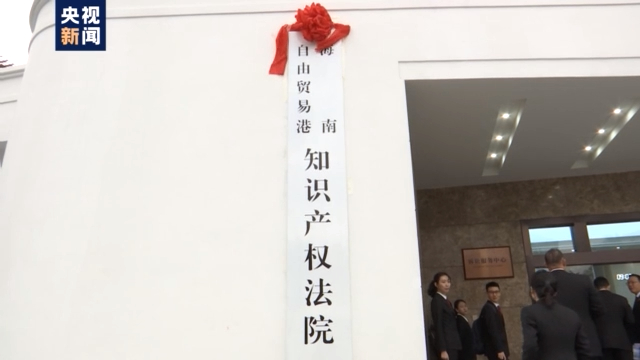 央视
新闻
海南
自由贸易港
知识产权法院